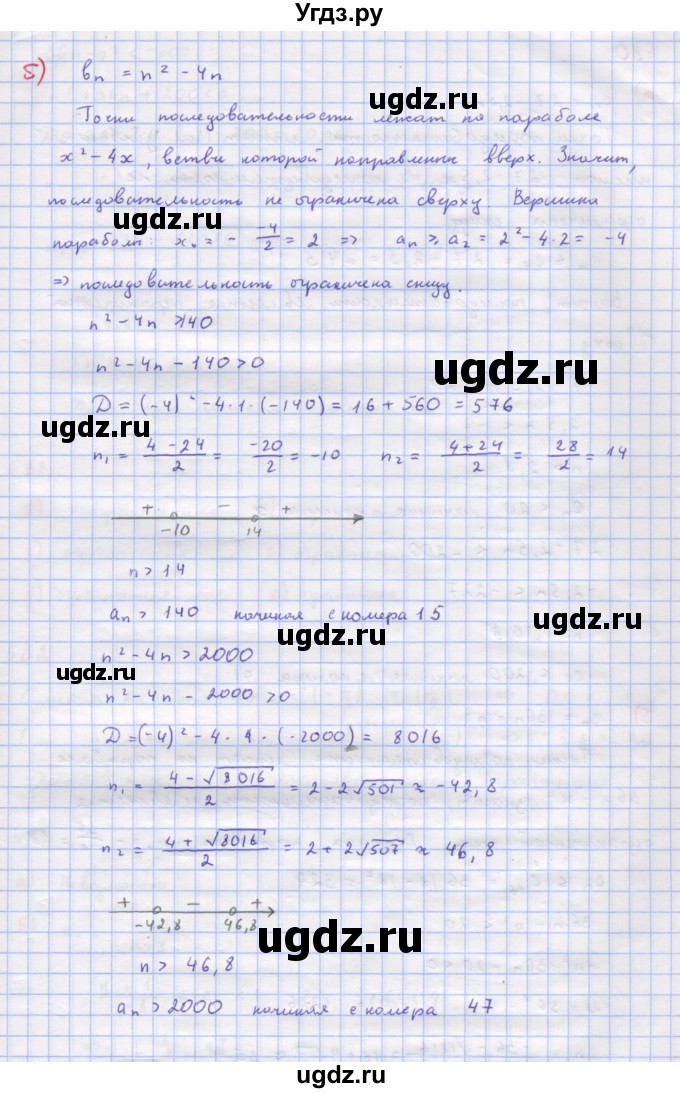 Угдз.ру
5) bₙ = n² - 4n
ugdz.ru
Точки последовательности лежат по параболе
x² - 4x, ветви которой направлены вверх. Значит,
последовательность не ограничена сверху. Вершина
ugdz.ru
параболы: x₀ = - -4/2 = 2 => aₙ ≥ a₂ = 2² - 4·2 = -4
=> последовательность ограничена снизу.
n² - 4n > 140
n² - 4n - 140 > 0
ugdz.ru
D = (-4)² - 4·1·(-140) = 16 + 560 = 576
ugdz.ru
n₁ = (4 - 24)/2 = -20/2 = -10 n₂ = (4 + 24)/2 = 28/2 = 14
+ - +
-10 14
n > 14
aₙ > 140 начиная с номера 15
ugdz.ru
n² - 4n > 2000
ugdz.ru
n² - 4n - 2000 > 0
D = (-4)² - 4·1·(-2000) = 8016
n₁ = (4 - √8016)/2 = 2 - 2√501 ≈ -42,8
n₂ = (4 + √8016)/2 = 2 + 2√507 ≈ 46,8
+ - +
-42,8 46,8
ugdz.ru
n > 46,8
aₙ > 2000 начиная с номера 47
ugdz.ru